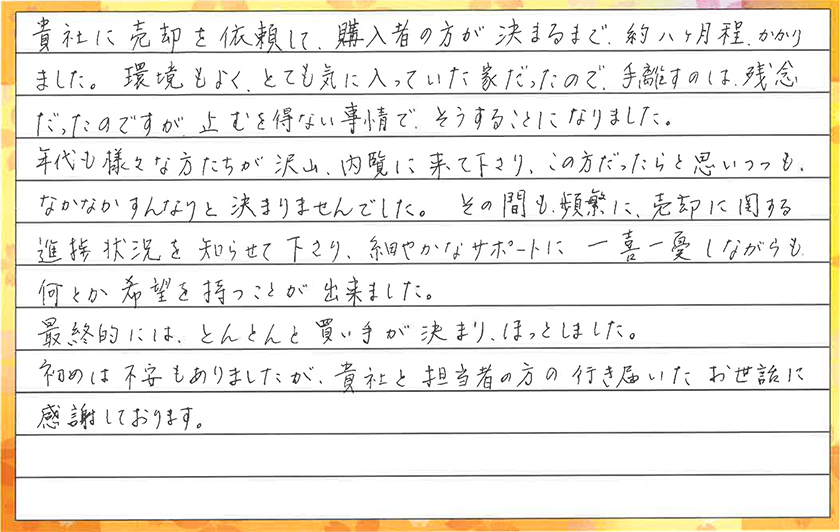 貴社に売却を依頼して、購入者の方が決まるまで、約八ヶ月程、かかり
ました。環境もよく、とても気に入っていた家だったので、手離すのは、残念
だったのですが、止むを得ない事情で、そうすることになりました。
年代も様々な方たちが沢山、内覧に来て下さり、この方だったらと思いつつも、
なかなかすんなりと決まりませんでした。その間も、頻繁に、売却に関する
進捗状況を知らせて下さり、細やかなサポートに一喜一憂しながらも、
何とか希望を持つことが出来ました。
最終的には、とんとんと買い手が決まり、ほっとしました。
初めは不安もありましたが、貴社と担当者の方の行き届いたお世話に
感謝しております。